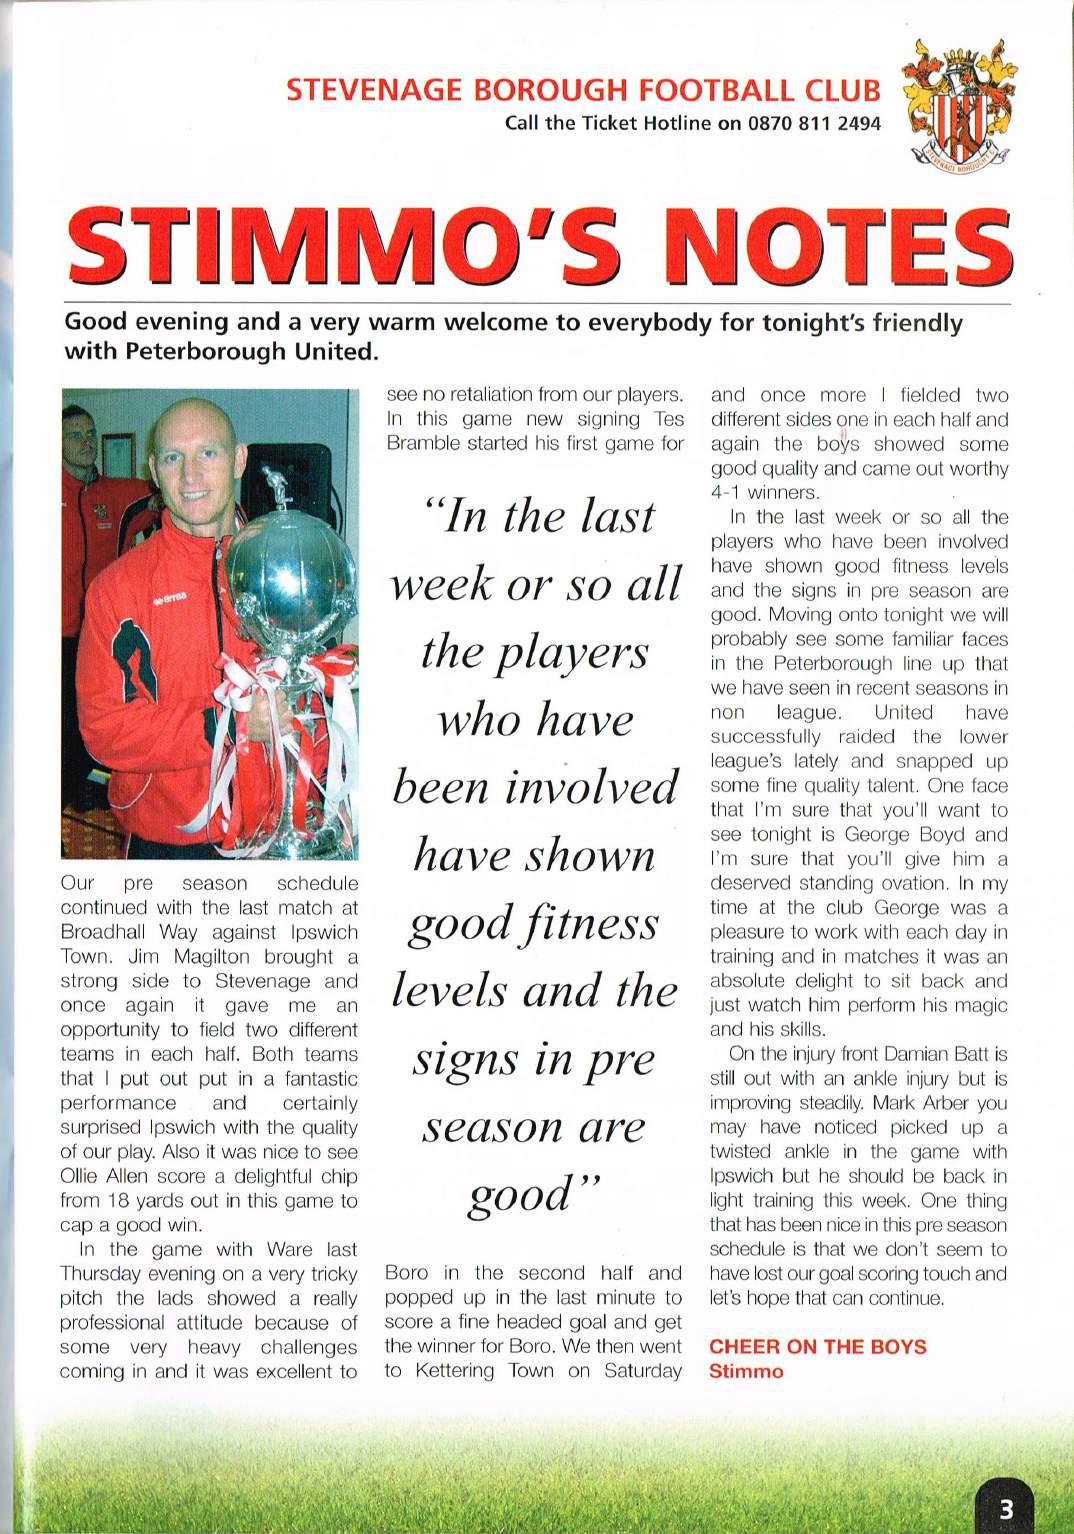 STEVENAGE BOROUGH FOOTBALL CLUB
Call the Ticket Hotline on 0870 811 2494
STEVENAGE BOROUGH F.C.
STIMMO'S NOTES
Good evening and a very warm welcome to everybody for tonight's friendly
with Peterborough United.
errea
Our pre season schedule
continued with the last match at
Broadhall Way against Ipswich
Town. Jim Magilton brought a
strong side to Stevenage and
once again it gave me an
opportunity to field two different
teams in each half. Both teams
that I put out put in a fantastic
performance and certainly
surprised Ipswich with the quality
of our play. Also it was nice to see
Ollie Allen score a delightful chip
from 18 yards out in this game to
cap a good win.
In the game with Ware last
Thursday evening on a very tricky
pitch the lads showed a really
professional attitude because of
some very heavy challenges
coming in and it was excellent to
see no retaliation from our players.
In this game new signing Tes
Bramble started his first game for
"In the last
week or so all
the players
who have
been involved
have shown
good fitness
levels and the
signs in pre
season are
good"
Boro in the second half and
popped up in the last minute to
score a fine headed goal and get
the winner for Boro. We then went
to Kettering Town on Saturday
and once more I fielded two
different sides one in each half and
again the boys showed some
good quality and came out worthy
4-1 winners.
In the last week or so all the
players who have been involved
have shown good fitness levels
and the signs in pre season are
good. Moving onto tonight we will
probably see some familiar faces
in the Peterborough line up that
we have seen in recent seasons in
non league. United have
successfully raided the lower
league's lately and snapped up
some fine quality talent. One face
that I'm sure that you'll want to
see tonight is George Boyd and
I'm sure that you'll give him a
deserved standing ovation. In my
time at the club George was a
pleasure to work with each day in
training and in matches it was an
absolute delight to sit back and
just watch him perform his magic
and his skills.
On the injury front Damian Batt is
still out with an ankle injury but is
improving steadily. Mark Arber you
may have noticed picked up a
twisted ankle in the game with
Ipswich but he should be back in
light training this week. One thing
that has been nice in this pre season
schedule is that we don't seem to
have lost our goal scoring touch and
let's hope that can continue.
CHEER ON THE BOYS
Stimmo
3